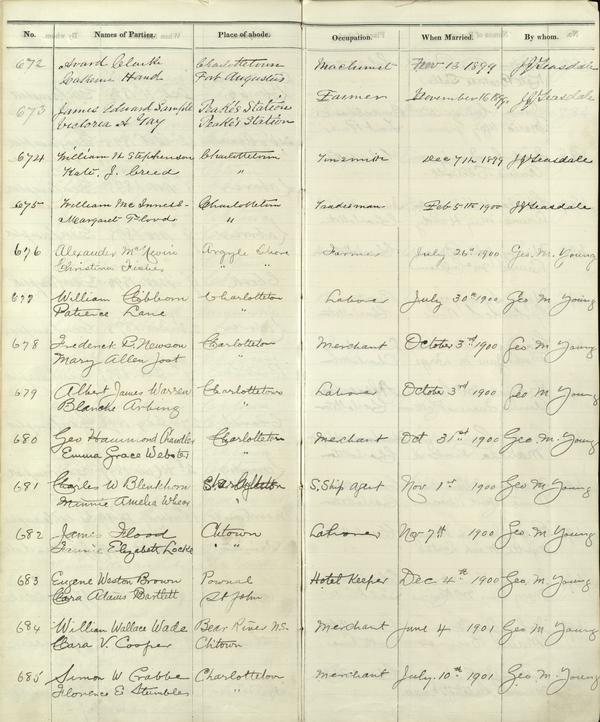 No. Names of Parties. Place of abode. Occupation. When Married. By whom.
672 Avard Clarke Charlottetown Machinist Nov 13 1899 JJ Teasdale
Catherine Hand Fort Augustus
673 James Edward Sample Peake's Station Farmer November 16 1899 JJ Teasdale
Victoria A Gay Peake's Station
674 William H Stephenson Charlottetown Tinsmith Dec 7th 1899 JJ Teasdale
Kate J. Creed "
675 William McInness Charlottetown Tradesman Feb 5th 1900 JJ Teasdale
Margaret Flood "
676 Alexander McNevin Argyle Shore Farmer July 26th 1900 Geo. M. Young
Christina " "
677 William Gibbom Charlotteton Laborer July 30th 1900 Geo M Young
Patience Lane "
678 Frederick P. Newson Charlotteton Merchant October 3rd 1900 Geo M. Young
Mary Allen Jost "
679 Albert James Warren Charlottetown Laborer October 3rd 1900 Geo M. Young
Blanche "
680 Geo Hammond Chandler Charlotteton Merchant Oct 31st 1900 Geo M. Young
Emma Grace Webster "
681 Charles W Blenkhorn Charlotteton S. Ship Agent Nov 1st 1900 Geo M Young
Minnie Amelia "
682 James Flood Chtown Laborer Nov 7th 1900 Geo. M Young
Fannie Elizabeth Locke " "
683 Eugene Weston Brown Pownal Hotel Keeper Dec 4th 1900 Geo. M. Young
Cara Adams Bartlett St John
684 William Wallace Wade Bear River N.S. Merchant June 4 1901 Geo M Young
Cara V. Cooper Chtown
685 Simon W Crabbe Charlotteton Merchant July 10th 1901 Geo. M. Young
Florence E Stumbles "